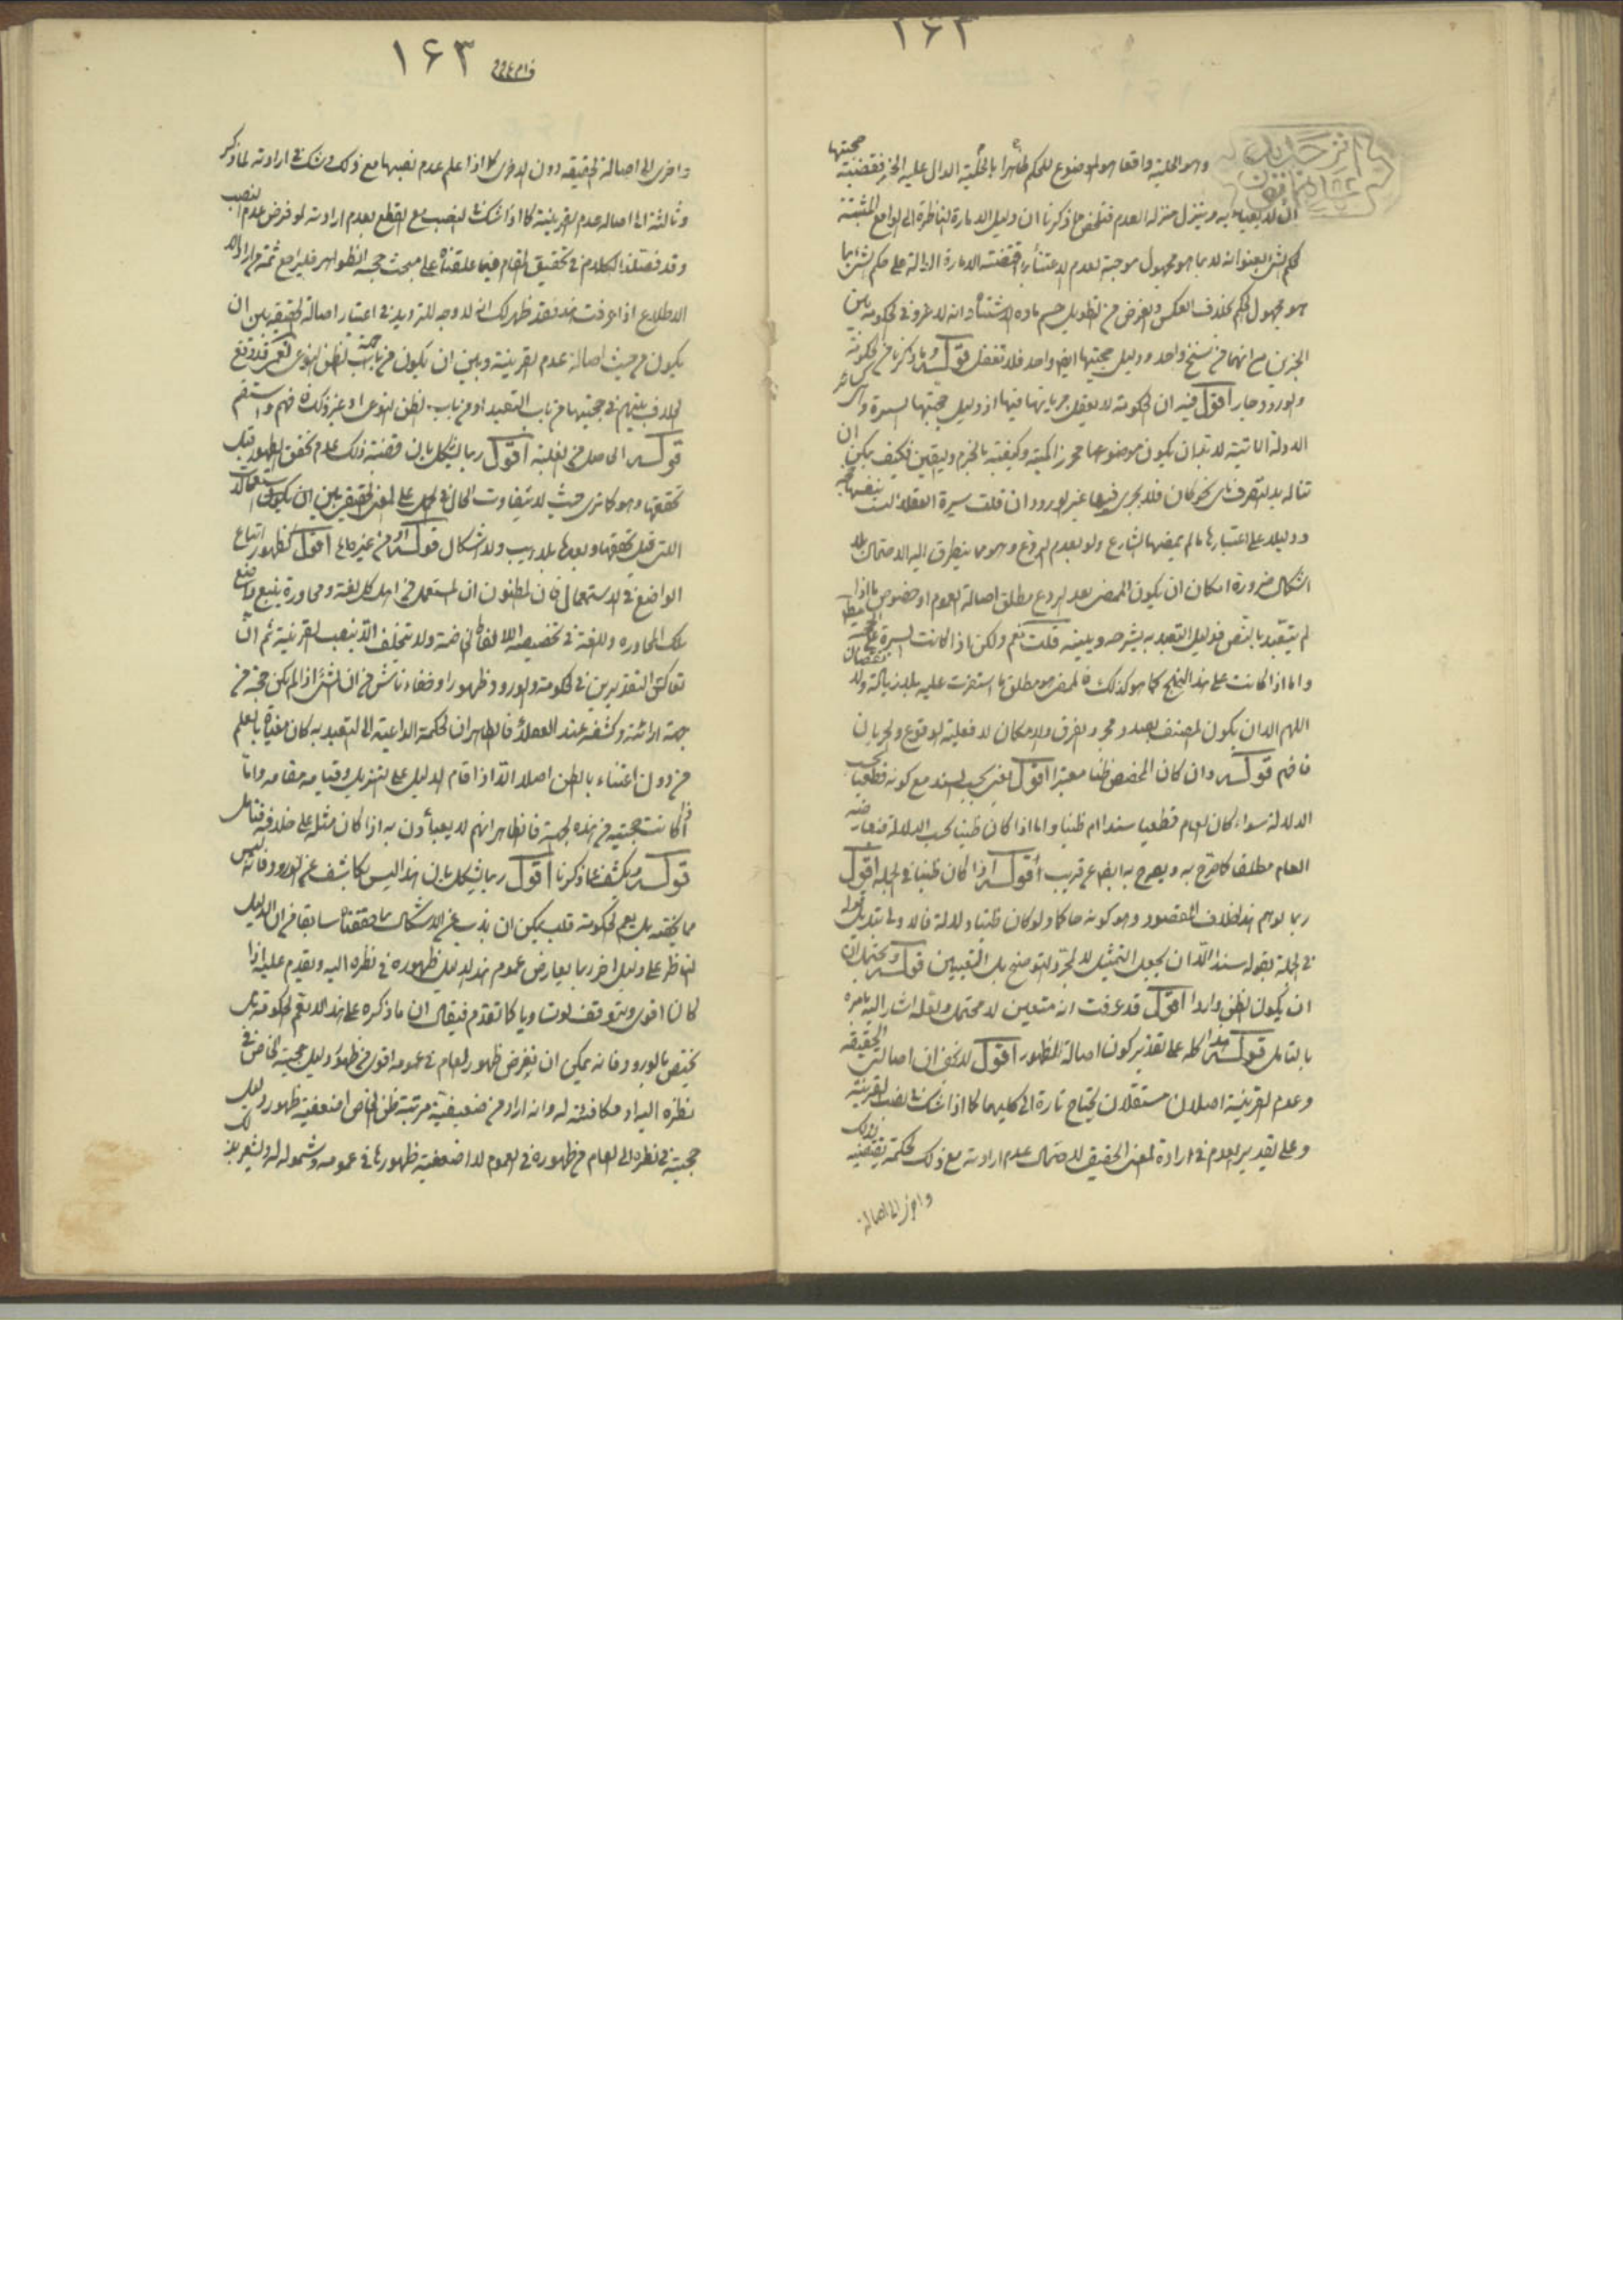 ۱۶۲
وهو الحلية واقعا هو الموضوع للحكم ظاهرا بالحلية الدال عليه الخبر فقضية حجيتها
ان لا يعباء به وينزل منزلة العدم فتلخص مما ذكرنا ان دليل الامارة الناظرة الى الواقع المثبتة
لحكم الشئ بعنوانه لا بما هو مجهول موجبة لعدم الاعتناء بما اقتضته الامارة الدالة على حكم الشئ بما
هو مجهول الحكم بخلاف العكس والغرض من التطويل حسم مادة الاشتباه وانه لا غرو في الحكومة بين
الخبرين مع انهما من سنخ واحد ودليل حجيتها ايضا واحد فلا تغفل قوله وما ذكرنا من الحكومة
والورود جار اقول فيه ان الحكومة لا يعقل جريانها فيها اذ دليل حجيتها السيرة و سائر
الادلة اللبية لا بد ان يكون موضوعها محرزا كمية وكيفية بالجزم واليقين فكيف يمكن ان
تناله يد التصرف باى نحو كان فلا يجرى فيها غير الورود ان قلت سيرة العقلاء ليست بنفسها حجة
ودليلا على اعتبارها ما لم يمضها الشارع ولو بعدم الردع وهو مما يتطرق اليه الاحتمال بلا
اشكال ضرورة امكان ان يكون الممضى بعد الردع مطلق اصالة العموم او خصوص ما اذا
لم يتعبد بالنص فدليل التعبد به يشرحه ويبينه قلت نعم ولكن اذا كانت السيرة على
واما اذا كانت على هذا النهج كما هو كذلك فالممضى هو مطلق ما استقرت عليه بلا زيادة ولا نقصان
اللهم الا ان يكون المصنف بصدد مجرد الفرق والامكان لا فعلية الوقوع والجريان
فافهم قوله وان كان المخصص ظنا معتبرا اقول يعنى بحسب السند مع كونه قطعيا بحسب
الدلالة سواء كان العام قطعيا سندا ام ظنيا واما اذا كان ظنيا بحسب الدلالة فيعارضه
العام مطلقا كما صرح به ويصرح به ايضا عن قريب قوله اذا كان ظنيا في الجملة اقول
ربما يوهم هذا خلاف المقصود وهو كونه حاكما ولو كان ظنيا دلالة فالاولى تبديل قوله
في الجملة بقوله سندا الا ان يجعل التمثيل لا لمجرد التوضيح بل التعيين قوله ويحتمل ان
ان يكون الظن واردا اقول قد عرفت انه متعين لا محتمل ولعله اشار اليه بامره
بالتامل قوله هذا كله على تقدير كون اصالة الظهور اقول لا يخفى ان اصالتى الحقيقة
وعدم القرينة اصلان مستقلان يحتاج تارة الى كليهما كما اذا شك في نصب القرينة
وعلى تقدير العدم في ارادة المعنى الحقيقى لاحتمال عدم ارادته مع ذلك لحكمة تقتضيه ذلك
واخرى الى اصالة
۱۶۳
واخرى الى اصالة الحقيقة دون الاخرى كما اذا علم عدم نصبها مع ذلك شك في ارادته لما ذكر
وثالثة الى اصالة عدم القرينة كما اذا شك في النصب مع القطع بعدم ارادته لو فرض عدم النصب
وقد فصلنا الكلام في تحقيق المقام فيما علقناه على مبحث حجية الظواهر فليراجع ثمة من اراد
الاطلاع اذا عرفت هذا فقد ظهر لك انه لا وجه للترديد في اعتبار اصالة الحقيقة بين ان
يكون من حيث اصالة عدم القرينة وبين ان يكون من جهة الظن النوعى نعم قد وقع
الخلاف بينهم في حجيتها من باب التعبد او من باب الظن النوعى او غير ذلك فافهم واستقم
قوله الحاصل من الغلبة اقول ربما يشكل بان قضية ذلك عدم تحقق الظهور قبل
تحققها وهو كما ترى حيث لا يتفاوت الحال في الحمل على المعنى الحقيقى بين ان يكون الاستعمالات
التى قبل تحققها وبعدها بلا ريب ولا اشكال قوله او من غيرها اقول كظهور اتباع
الواضع في الاستعمال فان المظنون ان المستعمل من اهل كل لغة ومحاورة يتبع واضع
تلك المحاورة واللغة في تخصيصه الالفاظ الخاصة ولا يتخلف الا بنصب القرينة ثم ان
تعاكس التقديرين في الحكومة والورود ظهورا وخفاء ناش من ان الشئ اذا لم يكن حجة من
جهة ارائته وكشفه عند العقلاء فالظاهر ان الحكمة الداعية الى التعبد به كان مغياة بالعلم
من دون اعتناء بالظن اصلا الا اذا قام الدليل على التنزيل وقيامه مقامه واما
اذا كانت حجيته من هذه الجهة فالظاهر انهم لا يعبأون به اذا كان مثله على خلافه فتامل
قوله ويكشف عما ذكرنا اقول ربما يشكل بان هذا ليس بكاشف عن الورود فانه ليس
مما يختص به بل يعم الحكومة قلت يمكن ان يذب عن الاشكال بما حققناه سابقا من ان الدليل
الناظر على دليل اخر ربما يعارض عموم هذا الدليل ظهوره في نظره اليه ويقدم عليه اذا
كان اقوى ويتوقف لو تساويا كما تقدم فيقال ان ما ذكره على هذا لا يعم الحكومة بل
يختص بالورود فانه يمكن ان يفرض ظهور العام في عمومه اقوى من ظهور دليل حجية الخاص في
نظره اليه او مكافئة له وانه اراد من ضعيفية مرتبة ظن الخاص اضعفية ظهور دليل
حجيته في نظره الى العام من ظهوره في العموم لا اضعفية ظهورها في عمومه وشموله له